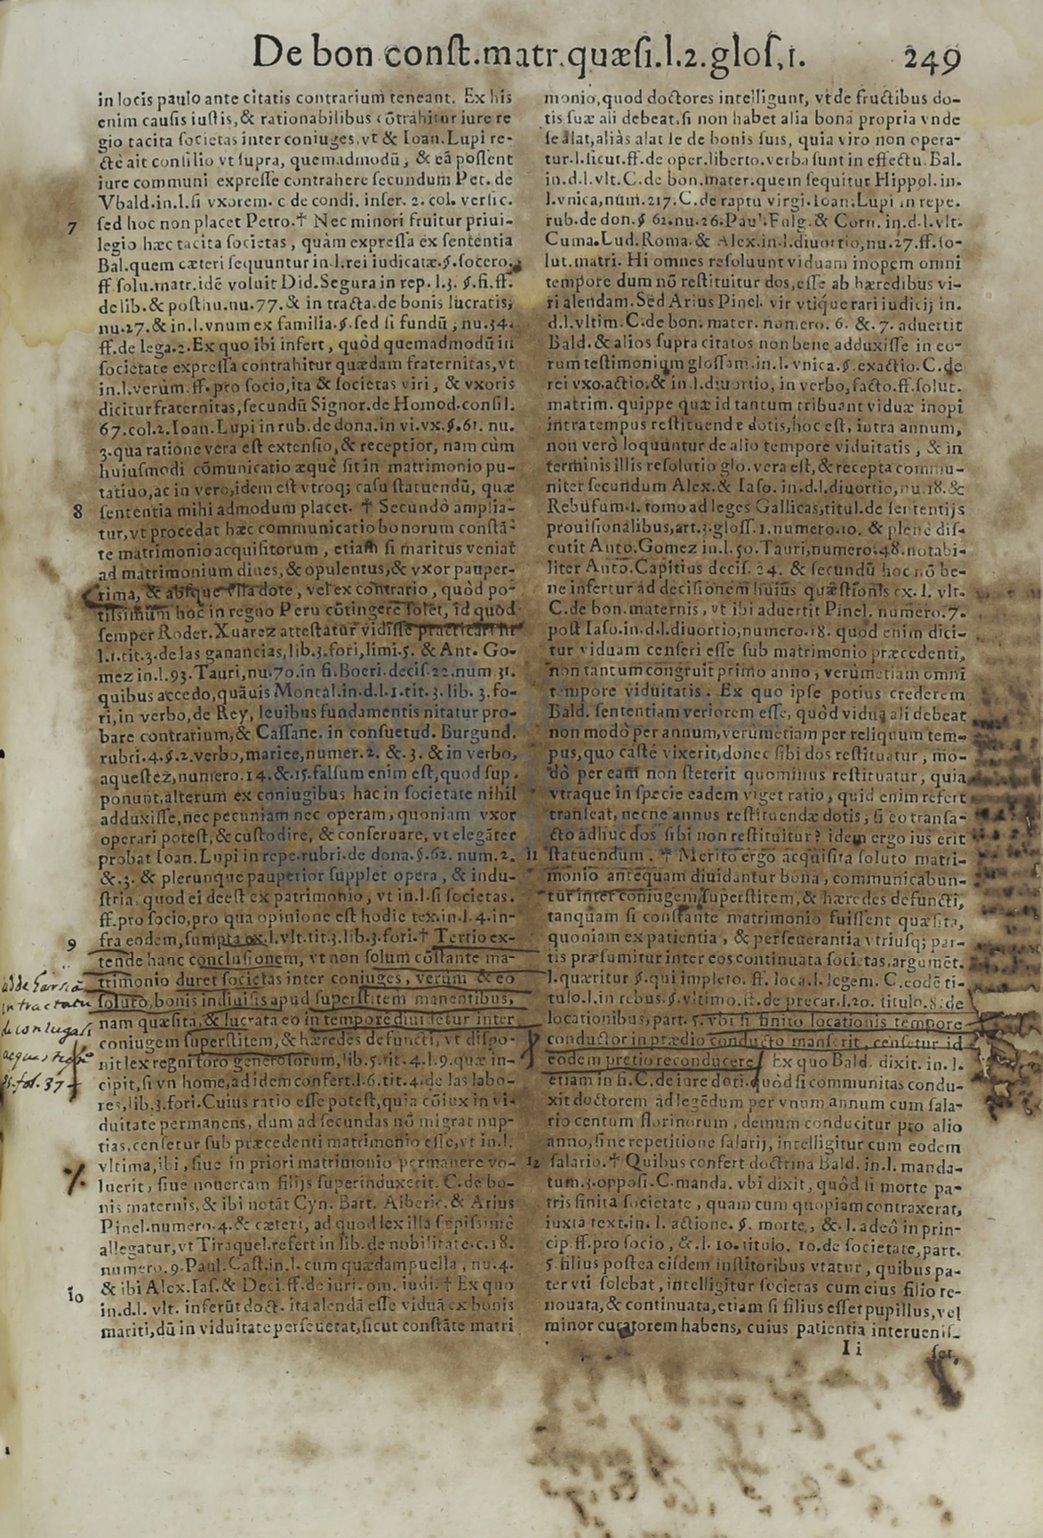 De bon const.matr.quæsi.l.2.glos.1. 249
in locis paulo ante citatis contrarium teneant. Ex his
enim causis iustis,& rationabilibus cōtrahitur iure re
gio tacita societas inter coniuges,vt & Ioan.Lupi re-
ctè ait consilio vt supra, quemadmodū, & eā possent
iure communi expresse contrahere secundum Pet. de
Vbald.in.l.si vxorem. c de condi. inser. 2. col. versic.
7 sed hoc non placet Petro.† Nec minori fruitur priui-
legio hæc tacita societas, quàm expressa ex sententia
Bal.quem cæteri sequuntur in.l.rei iudicatæ.§.socero,
ff.solu.matr.idē voluit Did.Segura in rep. l.3. §.fi.ff.
de lib.& posthu.nu.77.& in tracta.de bonis lucratis,
nu.27.& in.l.vnum ex familia.§.sed si fundū, nu.34.
ff.de lega.2.Ex quo ibi infert, quòd quemadmodū in
societate expressa contrahitur quædam fraternitas,vt
in.l.verùm.ff.pro socio,ita & societas viri, & vxoris
dicitur fraternitas,secundū Signor.de Homod.consil.
67.col.2.Ioan.Lupi in rub.de dona.in vi.vx.§.61. nu.
3.qua ratione vera est extensio,& receptior, nam cùm
huiusmodi cōmunicatio æquè sit in matrimonio pu-
tatiuo,ac in vero,idem est vtroq; casu statuendū, quæ
8 sententia mihi admodum placet. † Secundò amplia-
tur,vt procedat hæc communicatio bonorum constā-
te matrimonio acquisitorum, etiam si maritus veniat
ad matrimonium diues,& opulentus,& vxor pauper-
rima, & absque vlla dote, vel ex contrario, quòd po-
tissimùm hoc in regno Peru cōtingere solet, id quod
semper Roder.Xuarez attestatur vidisse practicari in
l.1.tit.3.de las ganancias,lib.3.fori,limi.5. & Ant. Go-
mez in.l.93.Tauri,nu.70.in fi.Boeri.decis.22.num 31.
quibus accedo,quāuis Montal.in.d.l.1.tit.3.lib. 3.fo-
ri,in verbo,de Rey, leuibus fundamentis nitatur pro-
bare contrarium,& Cassane. in consuetud. Burgund.
rubri.4.§.2.verbo,mariee,numer.2. &.3. & in verbo,
aquestez,numero.14.&.15.falsum enim est,quod sup-
ponunt,alterum ex coniugibus hac in societate nihil
adduxisse,nec pecuniam nec operam, quoniam vxor
operari potest,& custodire, & conseruare, vt elegāter
probat Ioan.Lupi in repe.rubri.de dona.§.62. num.2.
&.3. & plerunque pauperior supplet opera, & indu-
stria, quod ei deest ex patrimonio, vt in.l.si societas.
ff.pro socio,pro qua opinione est hodie tex.in.l.4.in-
9 fra eodem,sumpta ex.l.vlt.tit.3.lib.3.fori.† Tertio ex-
tende hanc conclusionem, vt non solum cōstante ma-
trimonio duret societas inter coniuges, verùm & eo
soluto,bonis indiuisis apud superstitem manentibus,
nam quæsita,& lucrata eo in tempore diuidetur inter
coniugem superstitem,& hæredes defuncti, vt dispo-
nit lex regni foro generosorum,lib.5.tit.4.l.9.quæ in-
cipit,si vn home,ad idem confert.l.6.tit.4.de las labo-
res,lib.3.fori.Cuius ratio esse potest,quia cōiux in vi-
duitate permanens, dum ad secundas nō migrat nup-
tias,censetur sub præcedenti matrimonio esse,vt in.l.
vltima,ibi, siue in priori matrimonio permanere vo-
luerit, siue nouercam filijs superinduxerit. C.de bo-
nis maternis,& ibi notāt Cyn. Bart. Alberic.& Arius
Pinel.numero.4.& cæteri, ad quod lex illa sæpissimè
allegatur,vt Tiraquel.refert in lib.de nobilitate.c.18.
numero.9.Paul.Cast.in.l.cum quædam puella, nu.4.
10 & ibi Alex.Ias.& Deci.ff.de iuri.om. iudi.† Ex quo
in.d.l. vlt. inferūt doct. ita alendā esse viduā ex bonis
mariti,dū in viduitate perseuerat,sicut constāte matri
adde Garsia
in tractatu
de coniugali
acquestu
fol. 37
monio,quod doctores intelligunt, vt de fructibus do-
tis suæ ali debeat,si non habet alia bona propria vnde
se alat,aliàs alat se de bonis suis, quia viro non opera-
tur.l.sicut.ff.de oper.liberto.verba sunt in effectu. Bal.
in.d.l.vlt.C.de bon.mater.quem sequitur Hippol. in.
l.vnica,num.217.C.de raptu virgi.Ioan.Lupi in repe.
rub.de don.§ 62.nu.26.Paul.Fulg.& Corn. in.d.l.vlt.
Cuma.Lud.Roma.& Alex.in.l.diuortio,nu.27.ff.so-
lut.matri. Hi omnes resoluunt viduam inopem omni
tempore dum nō restituitur dos,esse ab hæredibus vi-
ri alendam.Sed Arius Pinel. vir vtique rari iudicij in.
d.l.vltim.C.de bon. mater. numero. 6. & .7. aduertit
Bald.& alios supra citatos non bene adduxisse in eo-
rum testimonium glossam.in.l. vnica.§.exactio.C.de
rei vxo.actio,& in.l.diuortio, in verbo,facto.ff.solut.
matrim. quippe quæ id tantum tribuant viduæ inopi
intra tempus restituendę dotis,hoc est, intra annum,
non verò loquuntur de alio tempore viduitatis, & in
terminis illis resolutio glo.vera est,& recepta commu-
niter secundum Alex.& Iaso. in.d.l.diuortio,nu.18.&
Rebuf­um.1. tomo ad leges Gallicas,titul.de sententijs
prouisionalibus,art.3.gloss.1.numero.10. & plenè dis-
cutit Anto.Gomez in.l.50.Tauri,numero.48.notabi-
liter Antō.Capitius decis.24. & secundū hoc nō be-
ne infertur ad decisionem huius quæstionis ex. l. vlt.
C.de bon.maternis, vt ibi aduertit Pinel. numero.7.
post Iaso.in.d.l.diuortio,numero.18. quod enim dici-
tur viduam censeri esse sub matrimonio præcedenti,
non tantum congruit primo anno, verùm etiam omni
tempore viduitatis. Ex quo ipse potius crederem
Bald. sententiam veriorem esse, quòd vidua ali debeat
non modò per annum,verùm etiam per reliquum tem-
pus,quo castè vixerit,donec sibi dos restituatur, mo-
dò per eam non steterit quominus restituatur, quia
vtraque in specie eadem viget ratio, quid enim refert
transeat, necne annus restituendæ dotis, si eo transa-
cto adhuc dos sibi non restituitur? idem ergo ius erit
11 statuendum. † Merito ergo acquisita soluto matri-
monio antequam diuidantur bona, communicabun-
tur inter coniugem superstitem,& hæredes defuncti,
tanquam si constante matrimonio fuissent quæsita,
quoniam ex patientia, & perseuerantia vtriusq; par-
tis præsumitur inter eos continuata societas.argumēt.
l.quæritur §.qui impleto. ff. loca.l.legem. C.eodē ti-
tulo.l.in rebus.§.vltimo.ff.de precar.l.20. titulo.8.de
locationibus,part. 5.vbi si finito locationis tempore
conductor in prædio conducto manserit, censetur id
eodem pretio reconducere. Ex quo Bald. dixit. in.l.
etiam in fi.C.de iure doti.quòd si communitas condu-
xit doctorem ad legēdum per vnum annum cum sala-
rio centum florinorum, demum conducitur pro alio
anno,sine repetitione salarij, intelligitur cum eodem
12 salario.† Quibus confert doctrina Bald. in.l. manda-
tum.3.opposi.C.manda. vbi dixit, quòd si morte pa-
tris finita societate, quam cum quopiam contraxerat,
iuxta text.in. l. actione. §. morte, &.l. adeò in prin-
cip.ff.pro socio, &.l. 10.titulo. 10.de societate,part.
5.filius postea eisdem institoribus vtatur, quibus pa-
ter vti solebat, intelligitur societas cum eius filio re-
nouata,& continuata,etiam si filius esset pupillus,vel
minor curatorem habens, cuius patientia interuenis-
Ii set,